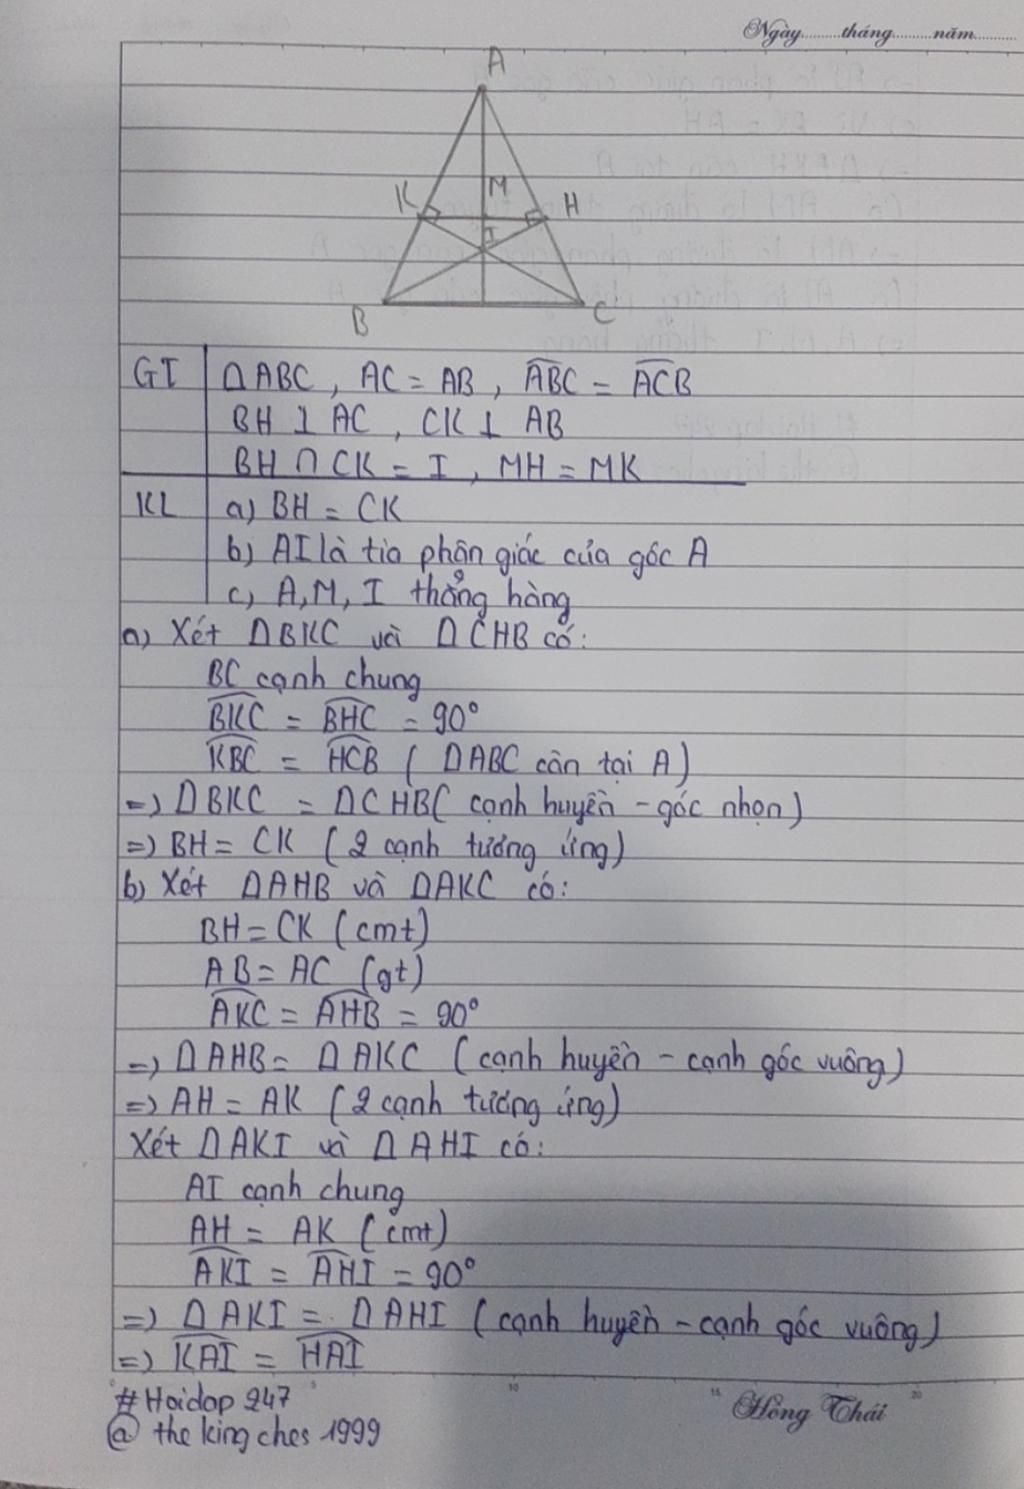 Ngày.........tháng.........năm...........
A
K M H
I
B C
GT ΔABC, AC = AB, ABC = ACB
BH ⊥ AC, CK ⊥ AB
BH ∩ CK = I, MH = MK
KL a) BH = CK
b) AI là tia phân giác của góc A
c) A, M, I thẳng hàng
a) Xét ΔBKC và ΔCHB có:
BC cạnh chung
BKC = BHC = 90°
KBC = HCB (ΔABC cân tại A)
=) ΔBKC = ΔCHB( cạnh huyền - góc nhọn)
=) BH = CK (2 cạnh tương ứng)
b) Xét ΔAHB và ΔAKC có:
BH = CK (cmt)
AB = AC (gt)
AKC = AHB = 90°
=) ΔAHB = ΔAKC (cạnh huyền - cạnh góc vuông)
=) AH = AK (2 cạnh tương ứng)
Xét ΔAKI và ΔAHI có:
AI cạnh chung
AH = AK (cmt)
AKI = AHI = 90°
=) ΔAKI = ΔAHI (cạnh huyền - cạnh góc vuông)
=) KAI = HAI
# Hoidap 247
@ the king ches 1999
Hồng Thái